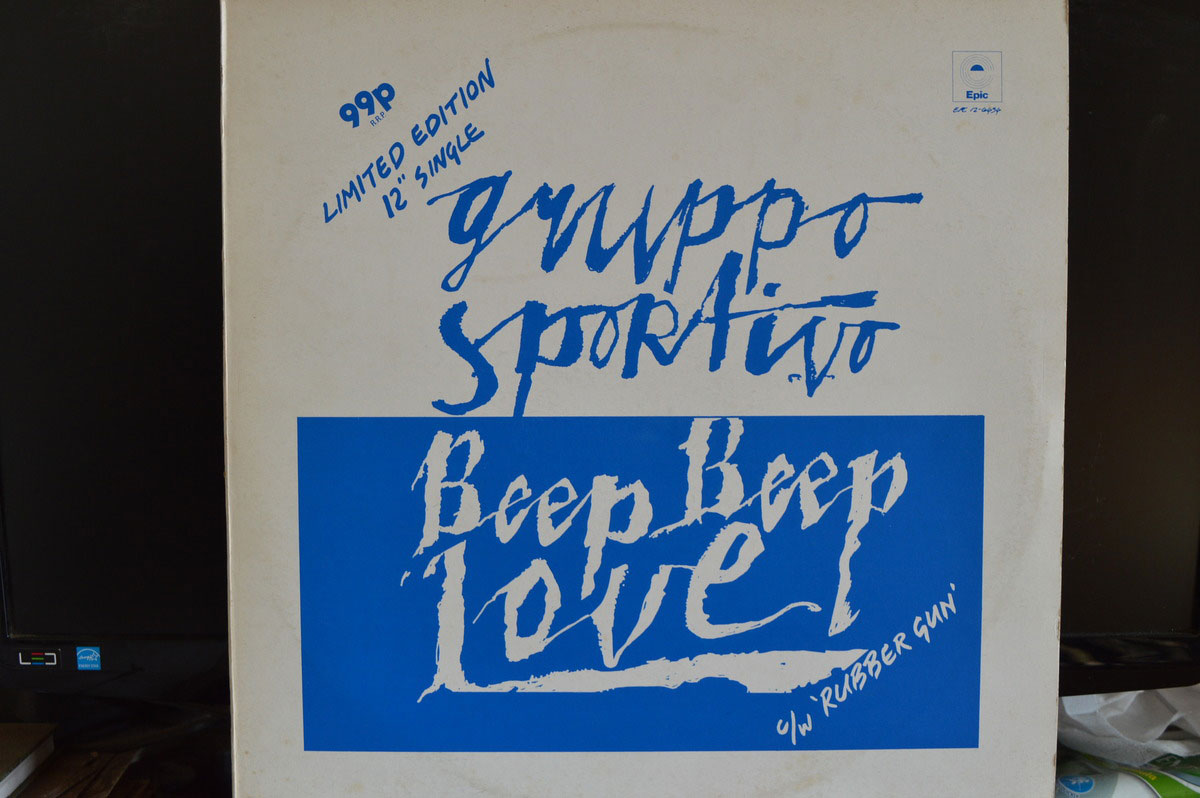 99p
R.R.P.
LIMITED EDITION
12" SINGLE
Epic
gruppo
sportivo
Beep Beep
Love
c/w 'RUBBER GUN'
LED